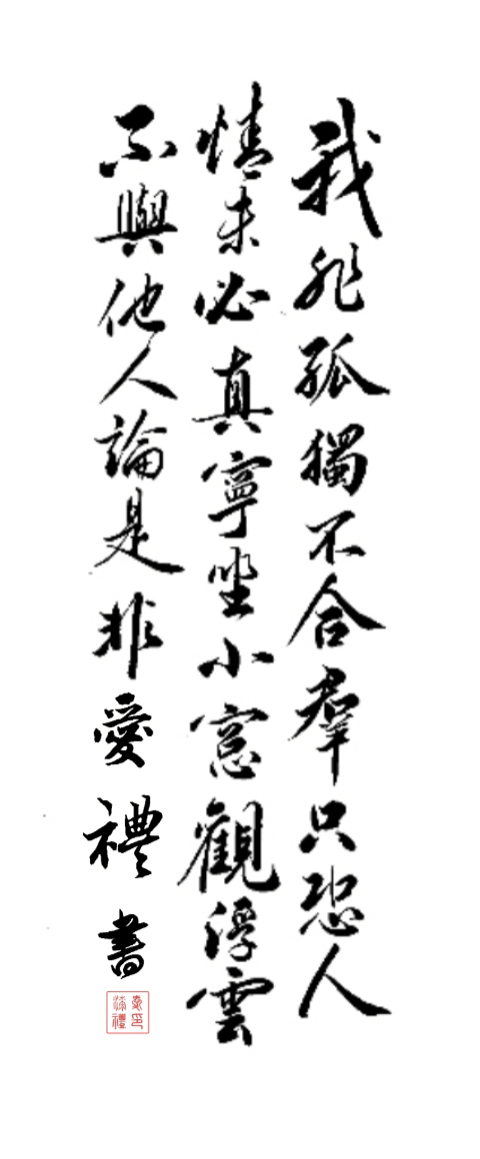 我非孤獨不合羣只恐人
情未必真寧坐小窓觀浮雲
不與他人論是非愛禮書